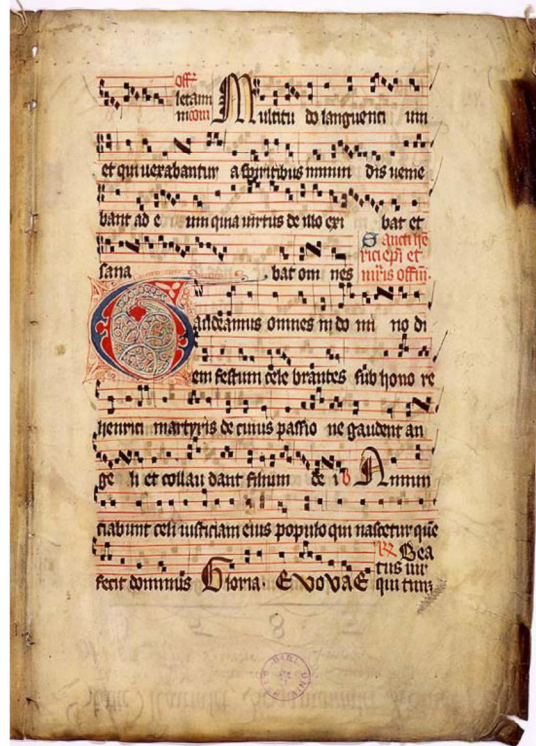 off
letamı
ni com Multitu do languenti um
et qui uexabantur a spiritibus inmun dis uenie
bant ad e um quia uirtus de illo exi bat et
sana bat om nes
Sancti he
rici epi et
mris offm
Gaudeamus omnes in do mi no di
em festum cele brantes sub hono re
henrici martyris de cuius passio ne gaudent an
ge li et collau dant filium de i Annun
ciabunt celi iusticiam eius populo qui nascetur que
fecit dominus Gloria. EVOVAE
Bea
tus uir
qui tim